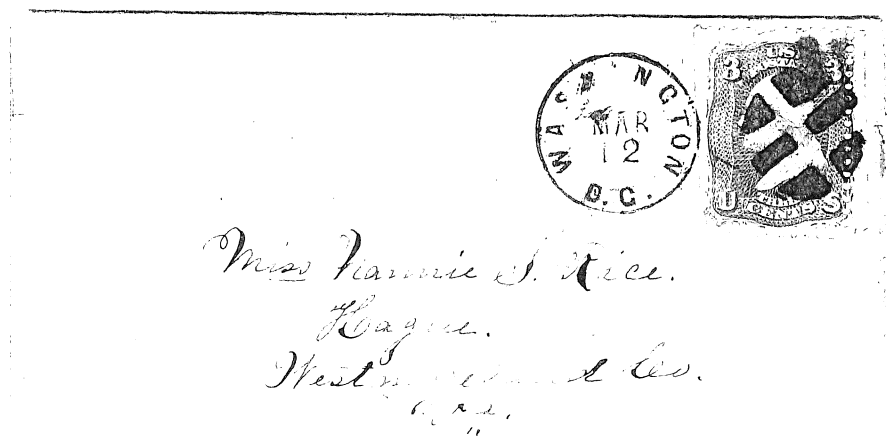 WASHINGTON
MAR
12
D.C.
U.S.
3 3
Miss Nannie J. Rice.
Hague.
Westmoreland Co.